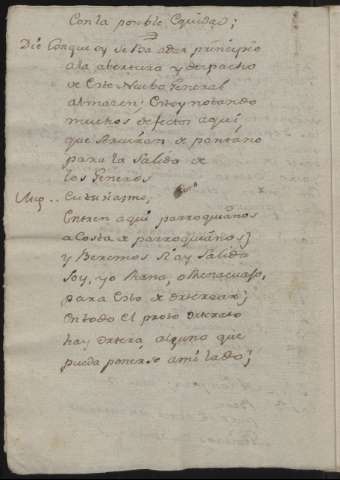 Con la posible Equidad;
Die Conque oy se ha de dar principio
a la abertura y despacho
de este Nuebo General
almazen; Estoy notando
muchos defectos aqui
que serviran de pantano
para la salida de
los Generos
entren aqui parroquianos
a costa de parroquianos;
y beremos si ay salida
soy, yo Rana, o
para esto de
en todo el
hay alguno que
pueda ponerse a mi lado;